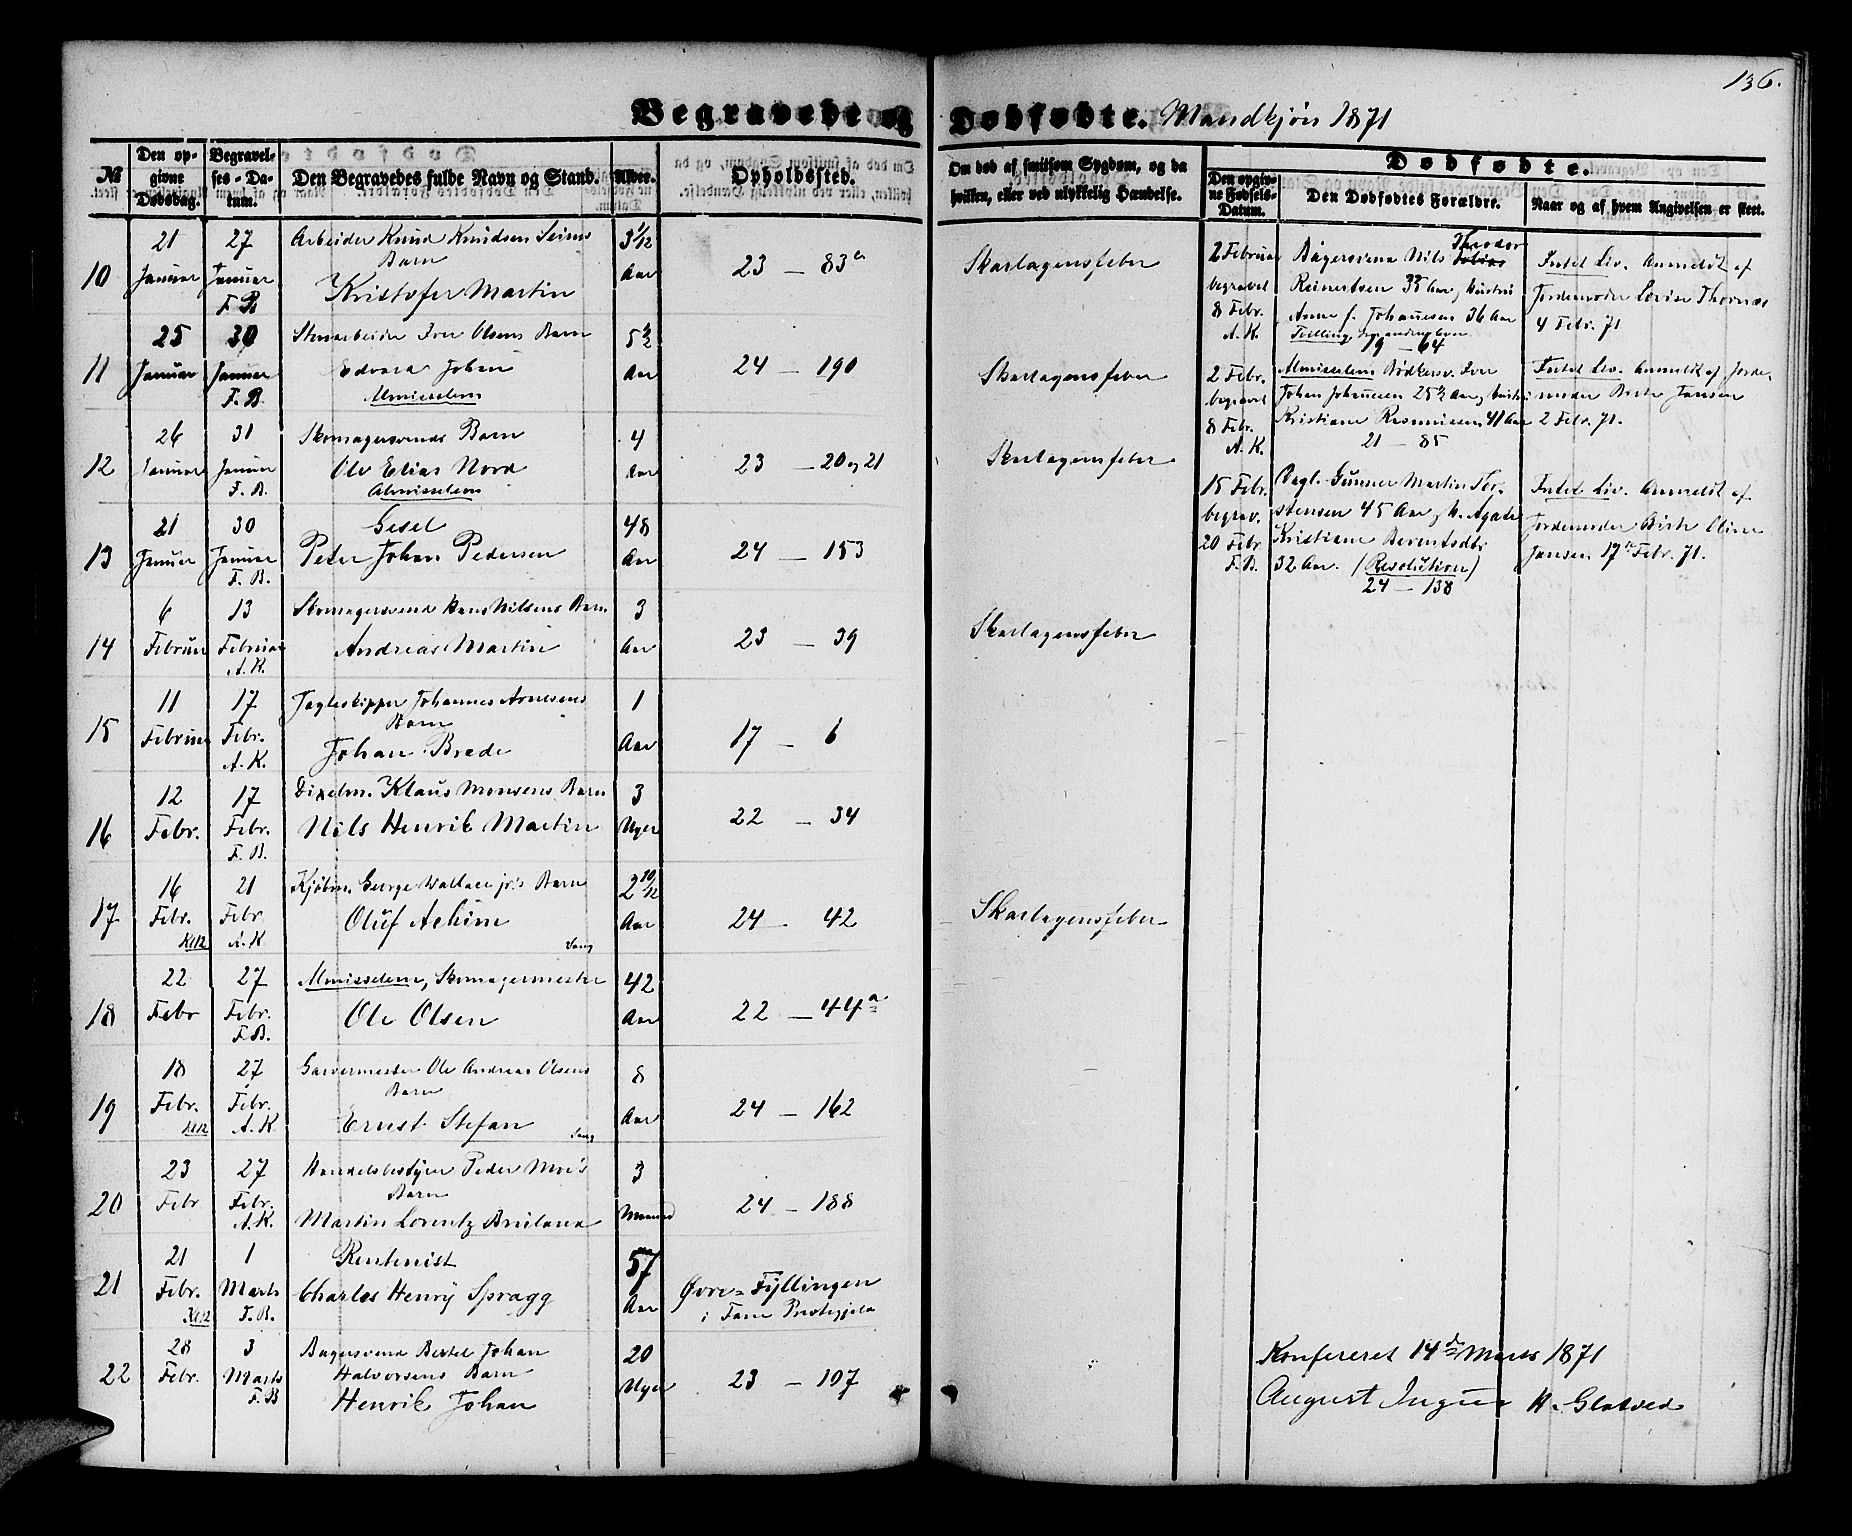 136.
Begravede og Dødfødte. Mandkjøn 1871
№
Den opgivne Dødsdag.
Begravelses-Datum.
Den Begravedes fulde Navn og Stand.
Alder.
Opholdssted.
Om død af smitsom Sygdom, og da hvilken, eller ved ulykkelig Hændelse.
Dødfødte.
Den opgivne Fødsels-Datum.
Den Dødfødtes Forældre.
Naar og af hvem Angivelsen er skeet.
10
21 Januar
27 Januar F. B.
Arbeider Knud Knudsen Seims
Barn
Kristofer Martin
3 1/12 Aar
23 — 83a
Skarlagensfeber
11
25 Januar
30 Januar F. B.
Stenarbeider Iver Olsens Barn
Edvard Johan
Almisselem
5 1/2 Aar
24 — 190
Skarlagensfeber
12
26 Januar
31 Januar F. B.
Skomagersvends Barn
Ole Elias Nord
Almisselem
4 Aar
23 — 20 og 21
Skarlagensfeber
13
21 Januar
30 Januar F. B.
Gesel
Peter Johan Pedersen
48 Aar
24 — 153
14
6 Februar
13 Februar A. K.
Skomagersvend Hans Nilsens Barn
Andreas Martin
3 Aar
23 — 39
Skarlagensfeber
15
11 Februar
17 Febr. A. K.
Jagteskipper Johannes Arnesens
Barn
Johan Brede
1 Aar
17 — 6
16
12 Febr.
17 Febr. F. B.
Dixelm. Klaus Monsens Barn
Nils Henrik Martin
3 Uger
22 — 34
17
16 Febr. Kl 12
21 Febr. A. K
Kjøbm. George Wallace jr's Barn
Oluf Achim
Sang
2 10/12 Aar
24 — 42
Skarlagensfeber
18
22 Febr
27 Febr. F. B.
Almisselem, Skomagermester
Ole Olsen
42 Aar
22 — 44a
19
18 Febr. Kl 12
27 Febr. A. K
Garvermester Ole Andreas Olsens
Barn
Ernst Stefan
Sang
8 Aar
24 — 162
20
23 Febr
27 Febr. A. K.
Handelsbestyrer Peder Moe's
Barn
Martin Lorentz
3 Maaned
24 — 188
21
21 Febr. Kl 12
1 Marts F. B.
Rentenist
Charles Henry Spragg
57 Aar
Øvre-Fyllingen
i Fane Prestegjeld
22
28 Febr.
3 Marts F. B
Bagersvend Bertel Johan
Halvorsens Barn
Henrik Johan
20 Uger
23 — 107
2 Februar
begravet
8 Febr.
A. K.
Bagersvend Nils Theodor
Reinertsen 35 Aar, Hustru
Anne f. Johannesen 36 Aar
Tvilling
19 — 64
Intet Liv. Anmeldt af
Jordemoder Lovise Thornæs
4 Febr. 71
2 Febr.
begravet
8 Febr.
A. K.
Almisselem Bødkersv. Iver
Johan Johannesen 25 1/2 Aar, Hustru
Kristiane Rasmussen 41 Aar
21 — 85
Intet Liv. Anmeldt af Jorde-
moder Birte Jansen
2 Febr. 71.
15 Febr.
begrav.
20 Febr
F. B.
Dagl. Gunner Martin Tor-
stensen 45 Aar, H. Agate
Kristiane Berentsdtr
32 Aar. (Resolution)
24 — 138
Intet Liv. Anmeldt af
Jordemoder Birte Oline
Jansen 17de Febr. 71.
Konfereret 14de Marts 1871
August
H. Glatved